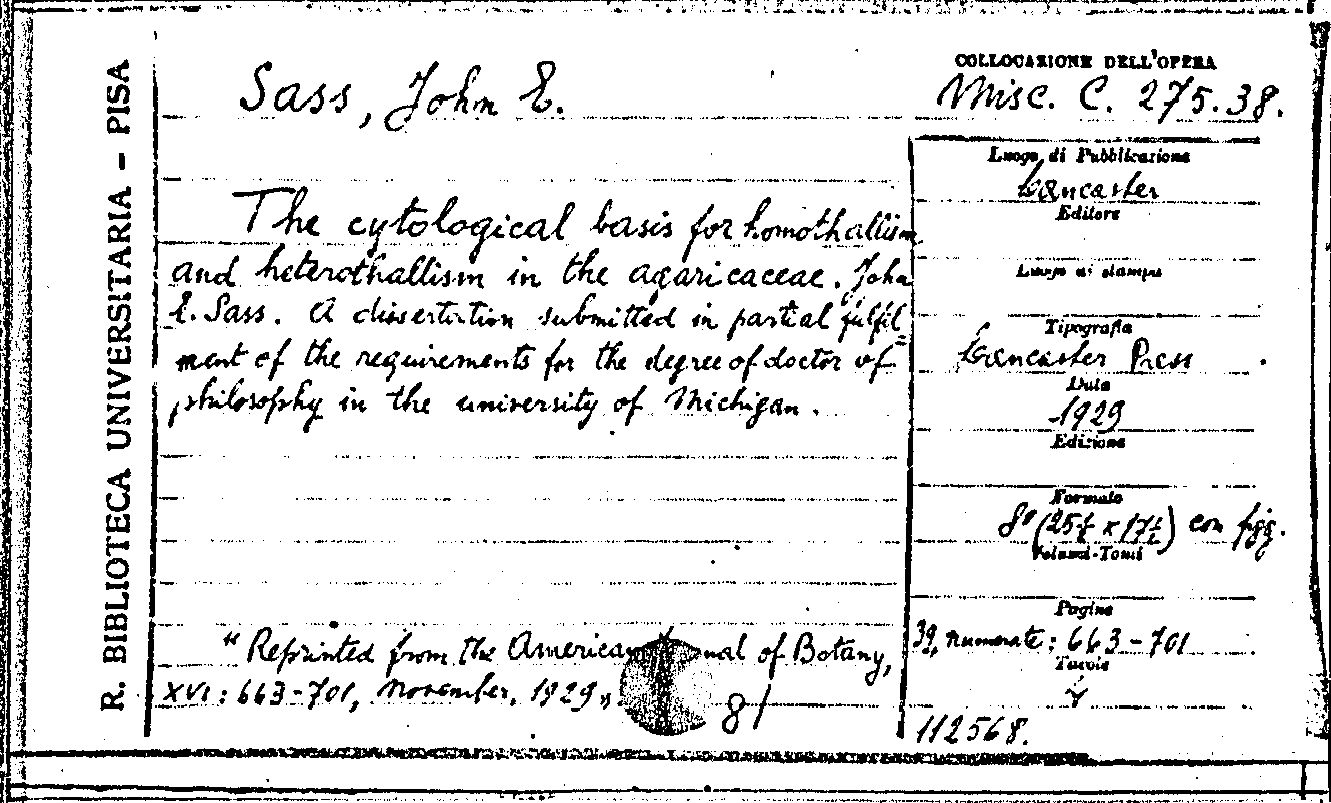 R. BIBLIOTECA UNIVERSITARIA – PISA
Sass, John E.
COLLOCAZIONE DELL'OPERA
Misc. C. 275.38.
The cytological basis for homothallism
and heterothallism in the agaricaceae. John
E. Sass. A dissertation submitted in partial fulfil=
ment of the requirements for the degree of doctor of
philosophy in the university of Michigan.
"Reprinted from the American nal of Botany,
XVI: 663-701, November, 1929„
81
Luogo di Pubblicazione
Lancaster
Editore
Luogo di stampa
Tipografia
Lancaster Press
Data
1929
Edizione
Formato
8° (25½ x 17½) con figg.
Volumi-Tomi
Pagine
39, numerate: 663-701
Tavole
112568.